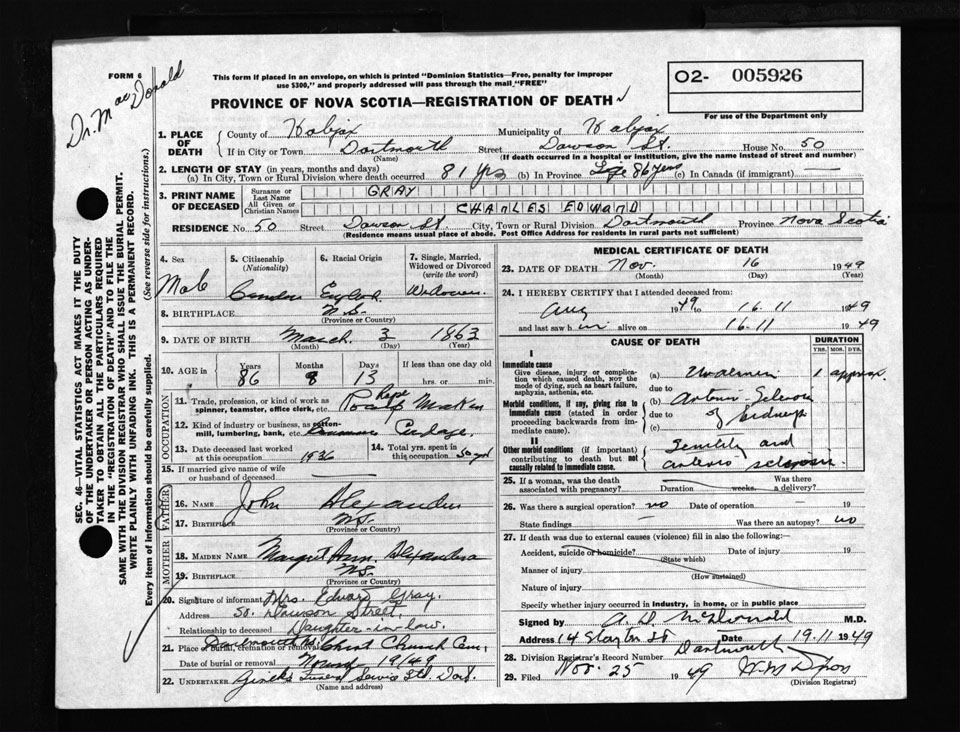 FORM 6
This form if placed in an envelope, on which is printed "Dominion Statistics—Free, penalty for improper
use $300," and properly addressed will pass through the mail "FREE"
O2- 005926
For use of the Department only
Dr. MacDonald
PROVINCE OF NOVA SCOTIA—REGISTRATION OF DEATH
1. PLACE OF DEATH
County of Halifax Municipality of Halifax
If in City or Town Dartmouth Street Dawson St. House No. 50
(Name) (If death occurred in a hospital or institution, give the name instead of street and number)
2. LENGTH OF STAY (in years, months and days)
(a) In City, Town or Rural Division where death occurred 81 yrs (b) In Province Life 86 years (c) In Canada (if immigrant)
3. PRINT NAME OF DECEASED
Surname or Last Name GRAY
All Given or Christian Names CHARLES EDWARD
RESIDENCE No. 50 Street Dawson St. City, Town or Rural Division Dartmouth Province Nova Scotia
(Residence means usual place of abode. Post Office Address for residents in rural parts not sufficient)
4. Sex Male
5. Citizenship (Nationality)
6. Racial Origin
7. Single, Married, Widowed or Divorced (write the word) Widower
8. BIRTHPLACE N.S.
(Province or Country)
9. DATE OF BIRTH March 3 1863
(Month) (Day) (Year)
10. AGE in Years 86 Months 8 Days 13 If less than one day old hrs. or min.
OCCUPATION
11. Trade, profession, or kind of work as spinner, teamster, office clerk, etc. Rope Maker
12. Kind of industry or business, as cotton-mill, lumbering, bank, etc. Cordage
13. Date deceased last worked at this occupation 1936
14. Total yrs. spent in this occupation 50 yrs
15. If married give name of wife or husband of deceased
FATHER
16. NAME John Alexander
17. BIRTHPLACE N.S.
(Province or Country)
MOTHER
18. MAIDEN NAME Margret Ann
19. BIRTHPLACE N.S.
(Province or Country)
20. Signature of informant Mrs. Edward Gray
Address 50 Dawson Street
Relationship to deceased Daughter-in-law
21. Place of burial, cremation or removal Dartmouth Christ Church Cem.
Date of burial or removal 19/49
22. UNDERTAKER Funeral Service Ltd. Dart.
(Name and address)
MEDICAL CERTIFICATE OF DEATH
23. DATE OF DEATH Nov. 16 1949
(Month) (Day) (Year)
24. I HEREBY CERTIFY that I attended deceased from:
Aug 1949 to 16.11 1949
and last saw him alive on 16.11 1949
CAUSE OF DEATH
DURATION
YRS. MOS. DYS.
I
Immediate cause
Give disease, injury or complication which caused death, NOT the mode of dying, such as heart failure, asphyxia, asthenia, etc.
(a) Uraemia 1 approx.
due to
Morbid conditions, if any, giving rise to immediate cause (stated in order proceeding backwards from immediate cause).
(b) Arterio-Sclerosis
due to of kidneys
(c)
II
Other morbid conditions (if important) contributing to death but not causally related to immediate cause.
Senility and
arterio sclerosis
25. If a woman, was the death associated with pregnancy? Duration weeks. Was there a delivery?
26. Was there a surgical operation? no Date of operation 19
State findings Was there an autopsy? no
27. If death was due to external causes (violence) fill in also the following:
Accident, suicide or homicide? Date of injury 19
(State which)
Manner of injury
(How sustained)
Nature of injury
Specify whether injury occurred in industry, in home, or in public place
Signed by A. D. McDonald M.D.
Address 14 St Date 19.11 1949
Dartmouth
28. Division Registrar's Record Number
29. Filed Nov. 25 1949
(Division Registrar)
SEC. 46—VITAL STATISTICS ACT MAKES IT THE DUTY
OF THE UNDERTAKER OR PERSON ACTING AS UNDER-
TAKER TO OBTAIN ALL THE PARTICULARS REQUIRED
IN THE "REGISTRATION OF DEATH" AND TO FILE THE
SAME WITH THE DIVISION REGISTRAR WHO SHALL ISSUE THE BURIAL PERMIT.
WRITE PLAINLY WITH UNFADING INK. THIS IS A PERMANENT RECORD.
Every item of information should be carefully supplied. (See reverse side for instructions.)